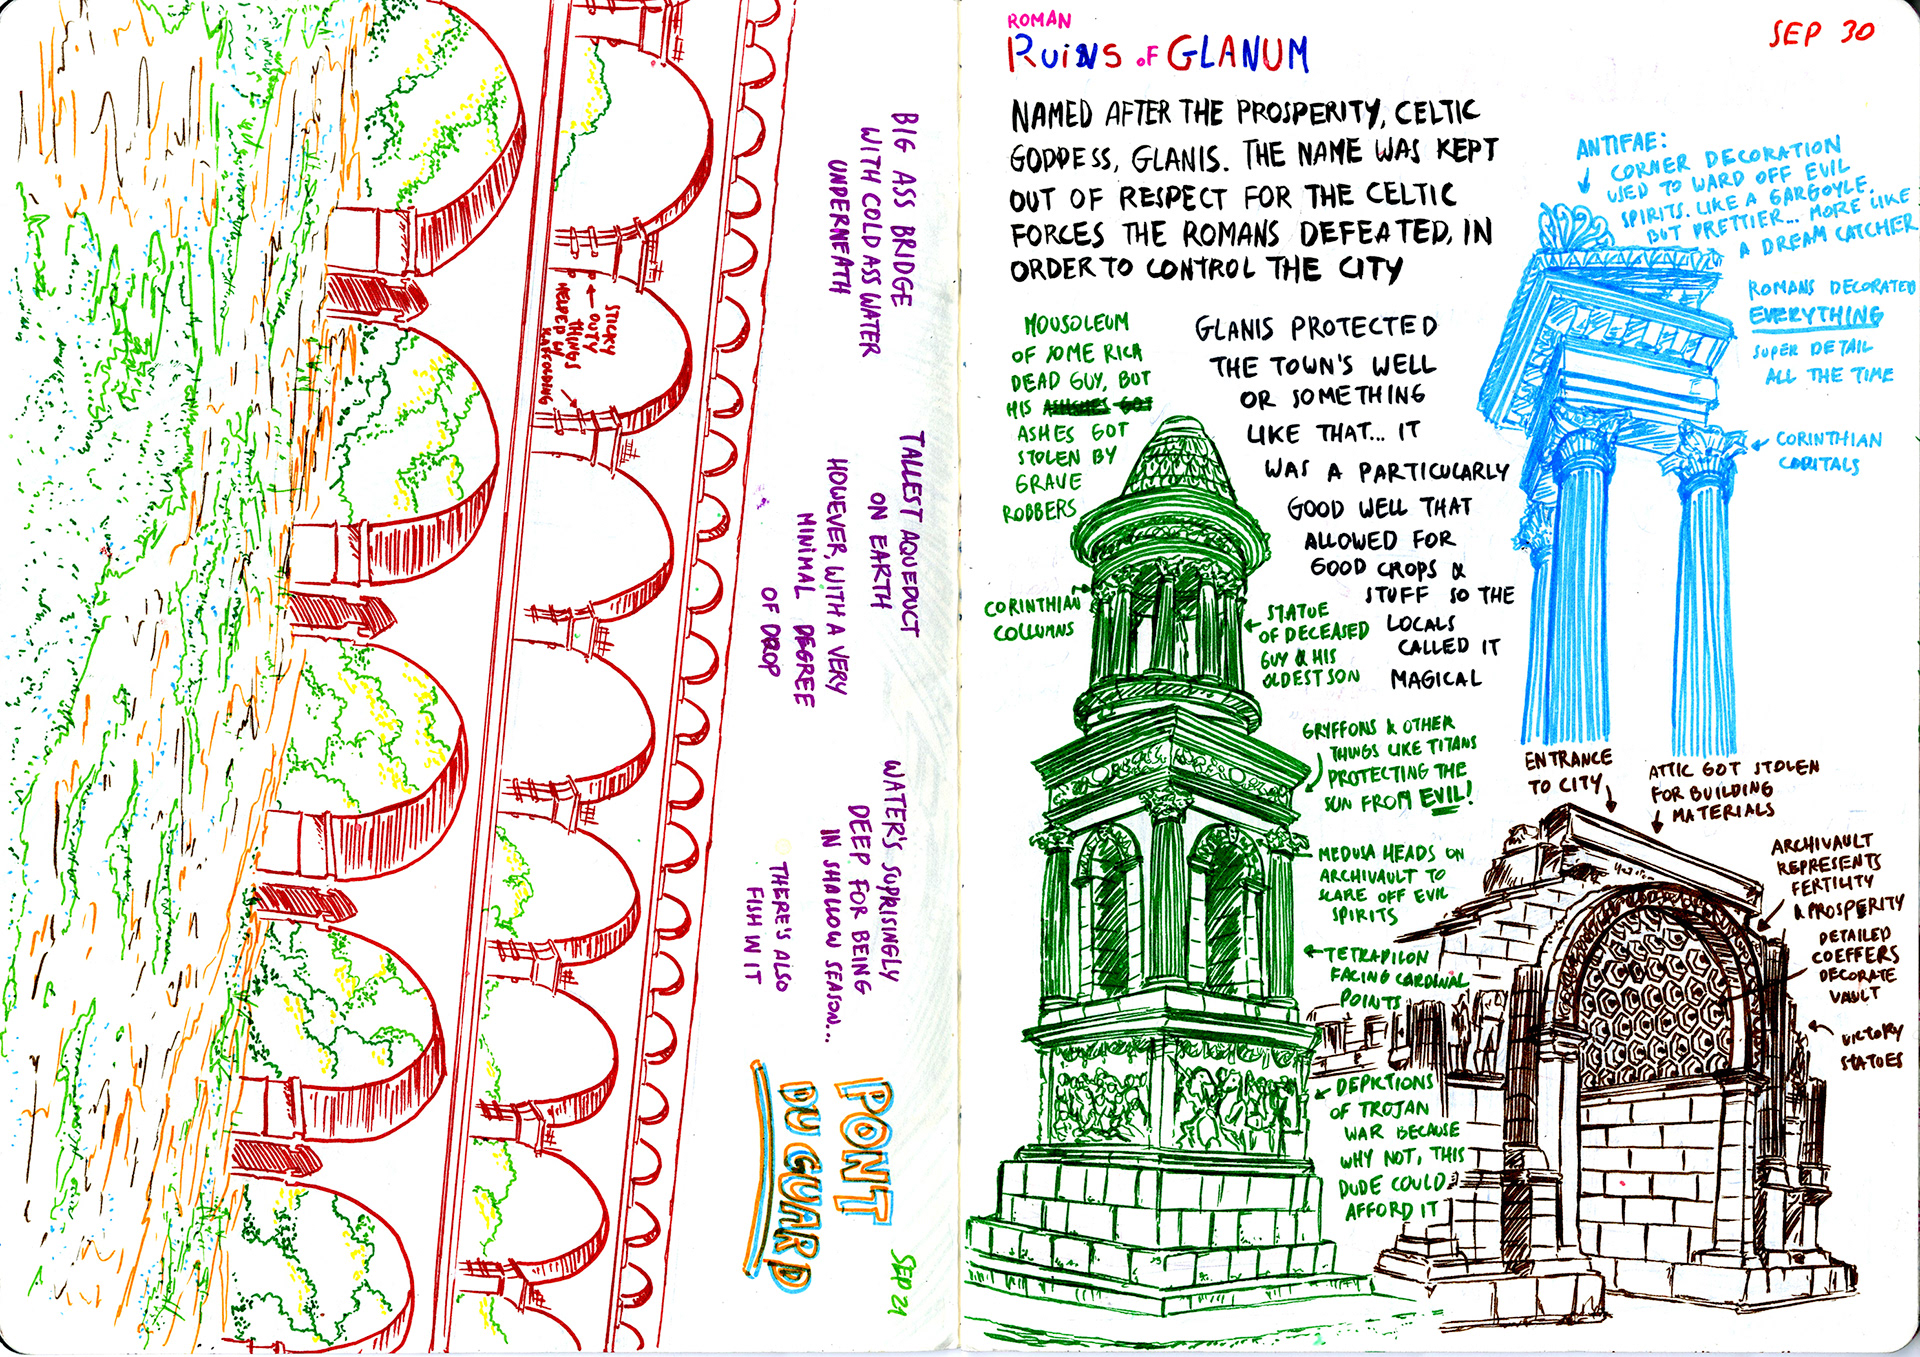 BIG ASS BRIDGE
WITH COLD ASS WATER
UNDERNEATH
TALLEST AQUEDUCT
ON EARTH
HOWEVER, WITH A VERY
MINIMAL DEGREE
OF DROP
WATER'S SUPRISINGLY
DEEP FOR BEING
IN SHALLOW SEASON...
THERE'S ALSO
FISH IN IT
STICKY
OUTY
THINGS
HELPED W/
SKAFFOLDING
PONT
DU GUARD
SEP 21
ROMAN
RUINS OF GLANUM
SEP 30
NAMED AFTER THE PROSPERITY, CELTIC
GODDESS, GLANIS. THE NAME WAS KEPT
OUT OF RESPECT FOR THE CELTIC
FORCES THE ROMANS DEFEATED, IN
ORDER TO CONTROL THE CITY
GLANIS PROTECTED
THE TOWN'S WELL
OR SOMETHING
LIKE THAT... IT
WAS A PARTICULARLY
GOOD WELL THAT
ALLOWED FOR
GOOD CROPS &
STUFF SO THE
LOCALS
CALLED IT
MAGICAL
ANTIFAE:
CORNER DECORATION
USED TO WARD OFF EVIL
SPIRITS. LIKE A GARGOYLE,
BUT PRETTIER... MORE LIKE
A DREAM CATCHER
ROMANS DECORATED
EVERYTHING
SUPER DETAIL
ALL THE TIME
CORINTHIAN
CAPITALS
MOUSOLEUM
OF SOME RICH
DEAD GUY, BUT
HIS ASHSHES GOT
ASHES GOT
STOLEN BY
GRAVE
ROBBERS
CORINTHIAN
COLLUMNS
STATUE
OF DECEASED
GUY & HIS
OLDEST SON
GRYFFONS & OTHER
THINGS LIKE TITANS
PROTECTING THE
SUN FROM EVIL!
MEDUSA HEADS ON
ARCHIVAULT TO
SCARE OFF EVIL
SPIRITS
TETRAPILON
FACING CARDINAL
POINTS
DEPICTIONS
OF TROJAN
WAR BECAUSE
WHY NOT, THIS
DUDE COULD
AFFORD IT
ENTRANCE
TO CITY
ATTIC GOT STOLEN
FOR BUILDING
MATERIALS
ARCHIVAULT
REPRESENTS
FERTILITY
& PROSPERITY
DETAILED
COEFFERS
DECORATE
VAULT
VICTORY
STATUES